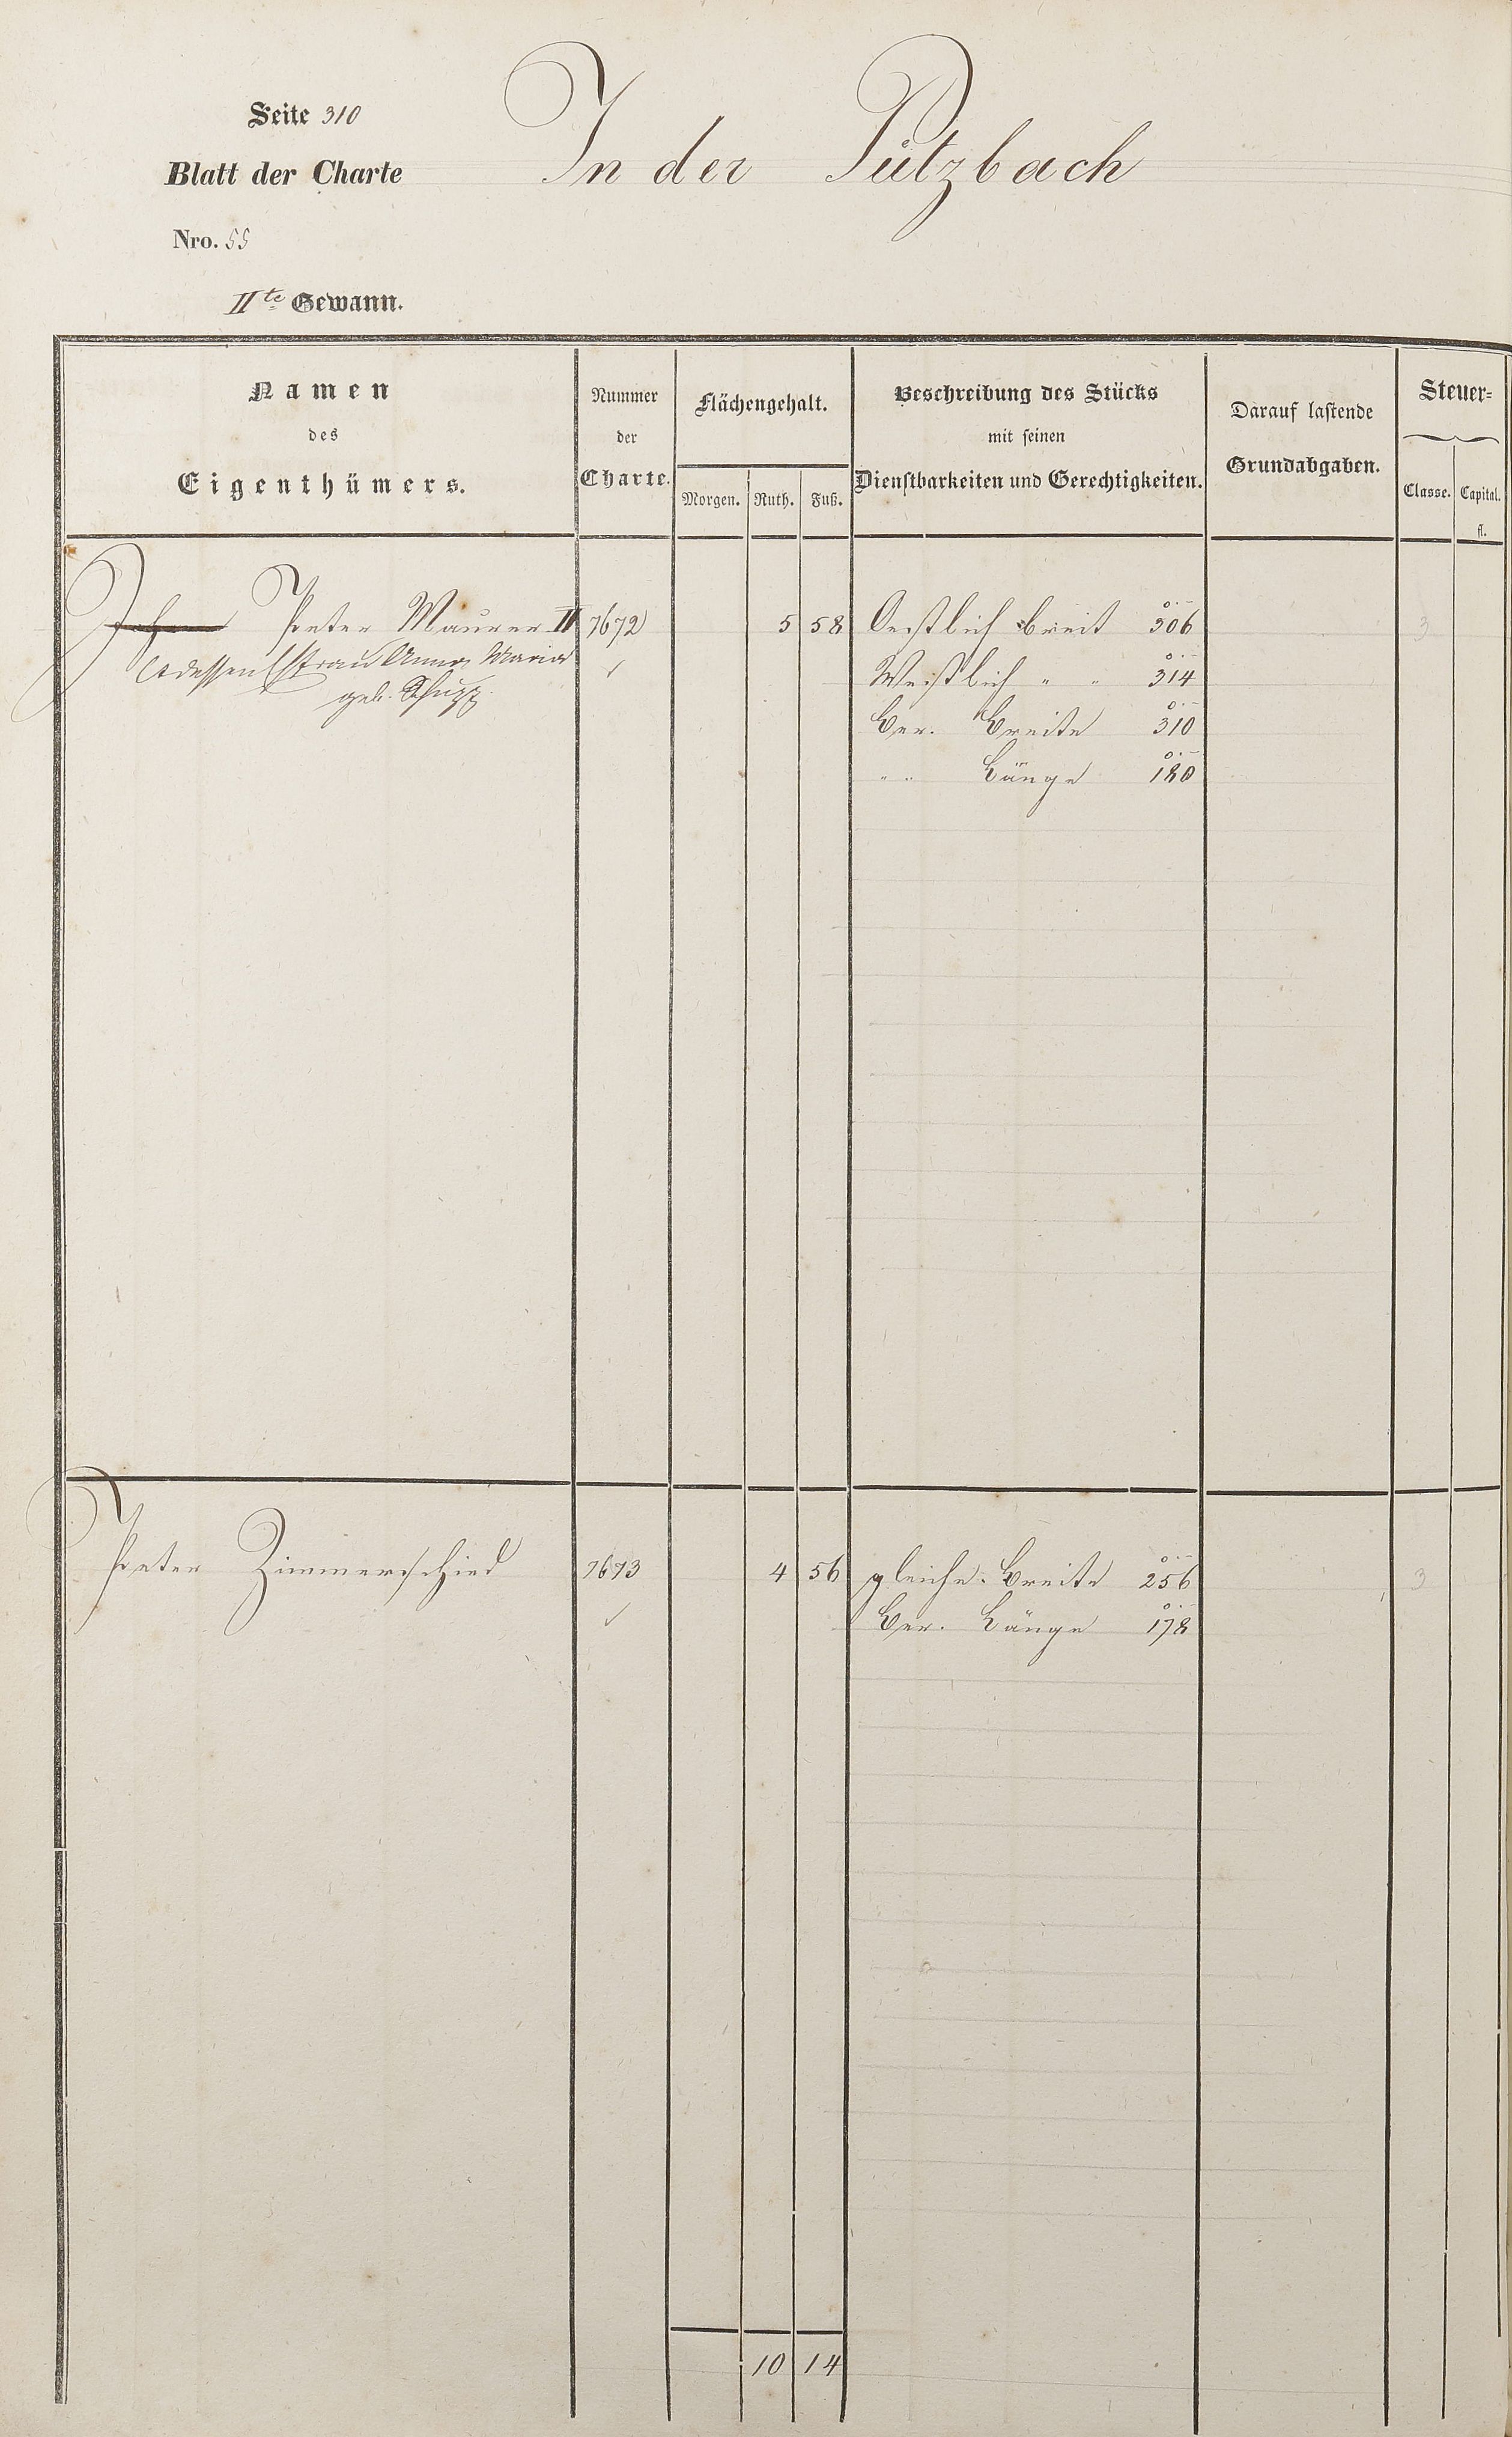 Seite 310
In der Pützbach
Blatt der Charte
Nro. 55
IIte Gewann.
Namen
des
Eigenthümers.
Nummer
der
Charte.
Flächengehalt.
Morgen. Ruth. Fuß.
Beschreibung des Stücks
mit seinen
Dienstbarkeiten und Gerechtigkeiten.
Darauf lastende
Grundabgaben.
Steuer-
Classe. Capital.
fl.
Peter Maurer II 7672 5 58 Oestlich breit 306 3
Anna Maria
geb. Schupp
Westlich " " 314
Ber. Breite 310
" " Länge 180
Peter Zimmerschied 7673 4 56 gleiche Breite 256 3
Ber. Länge 178
10 14